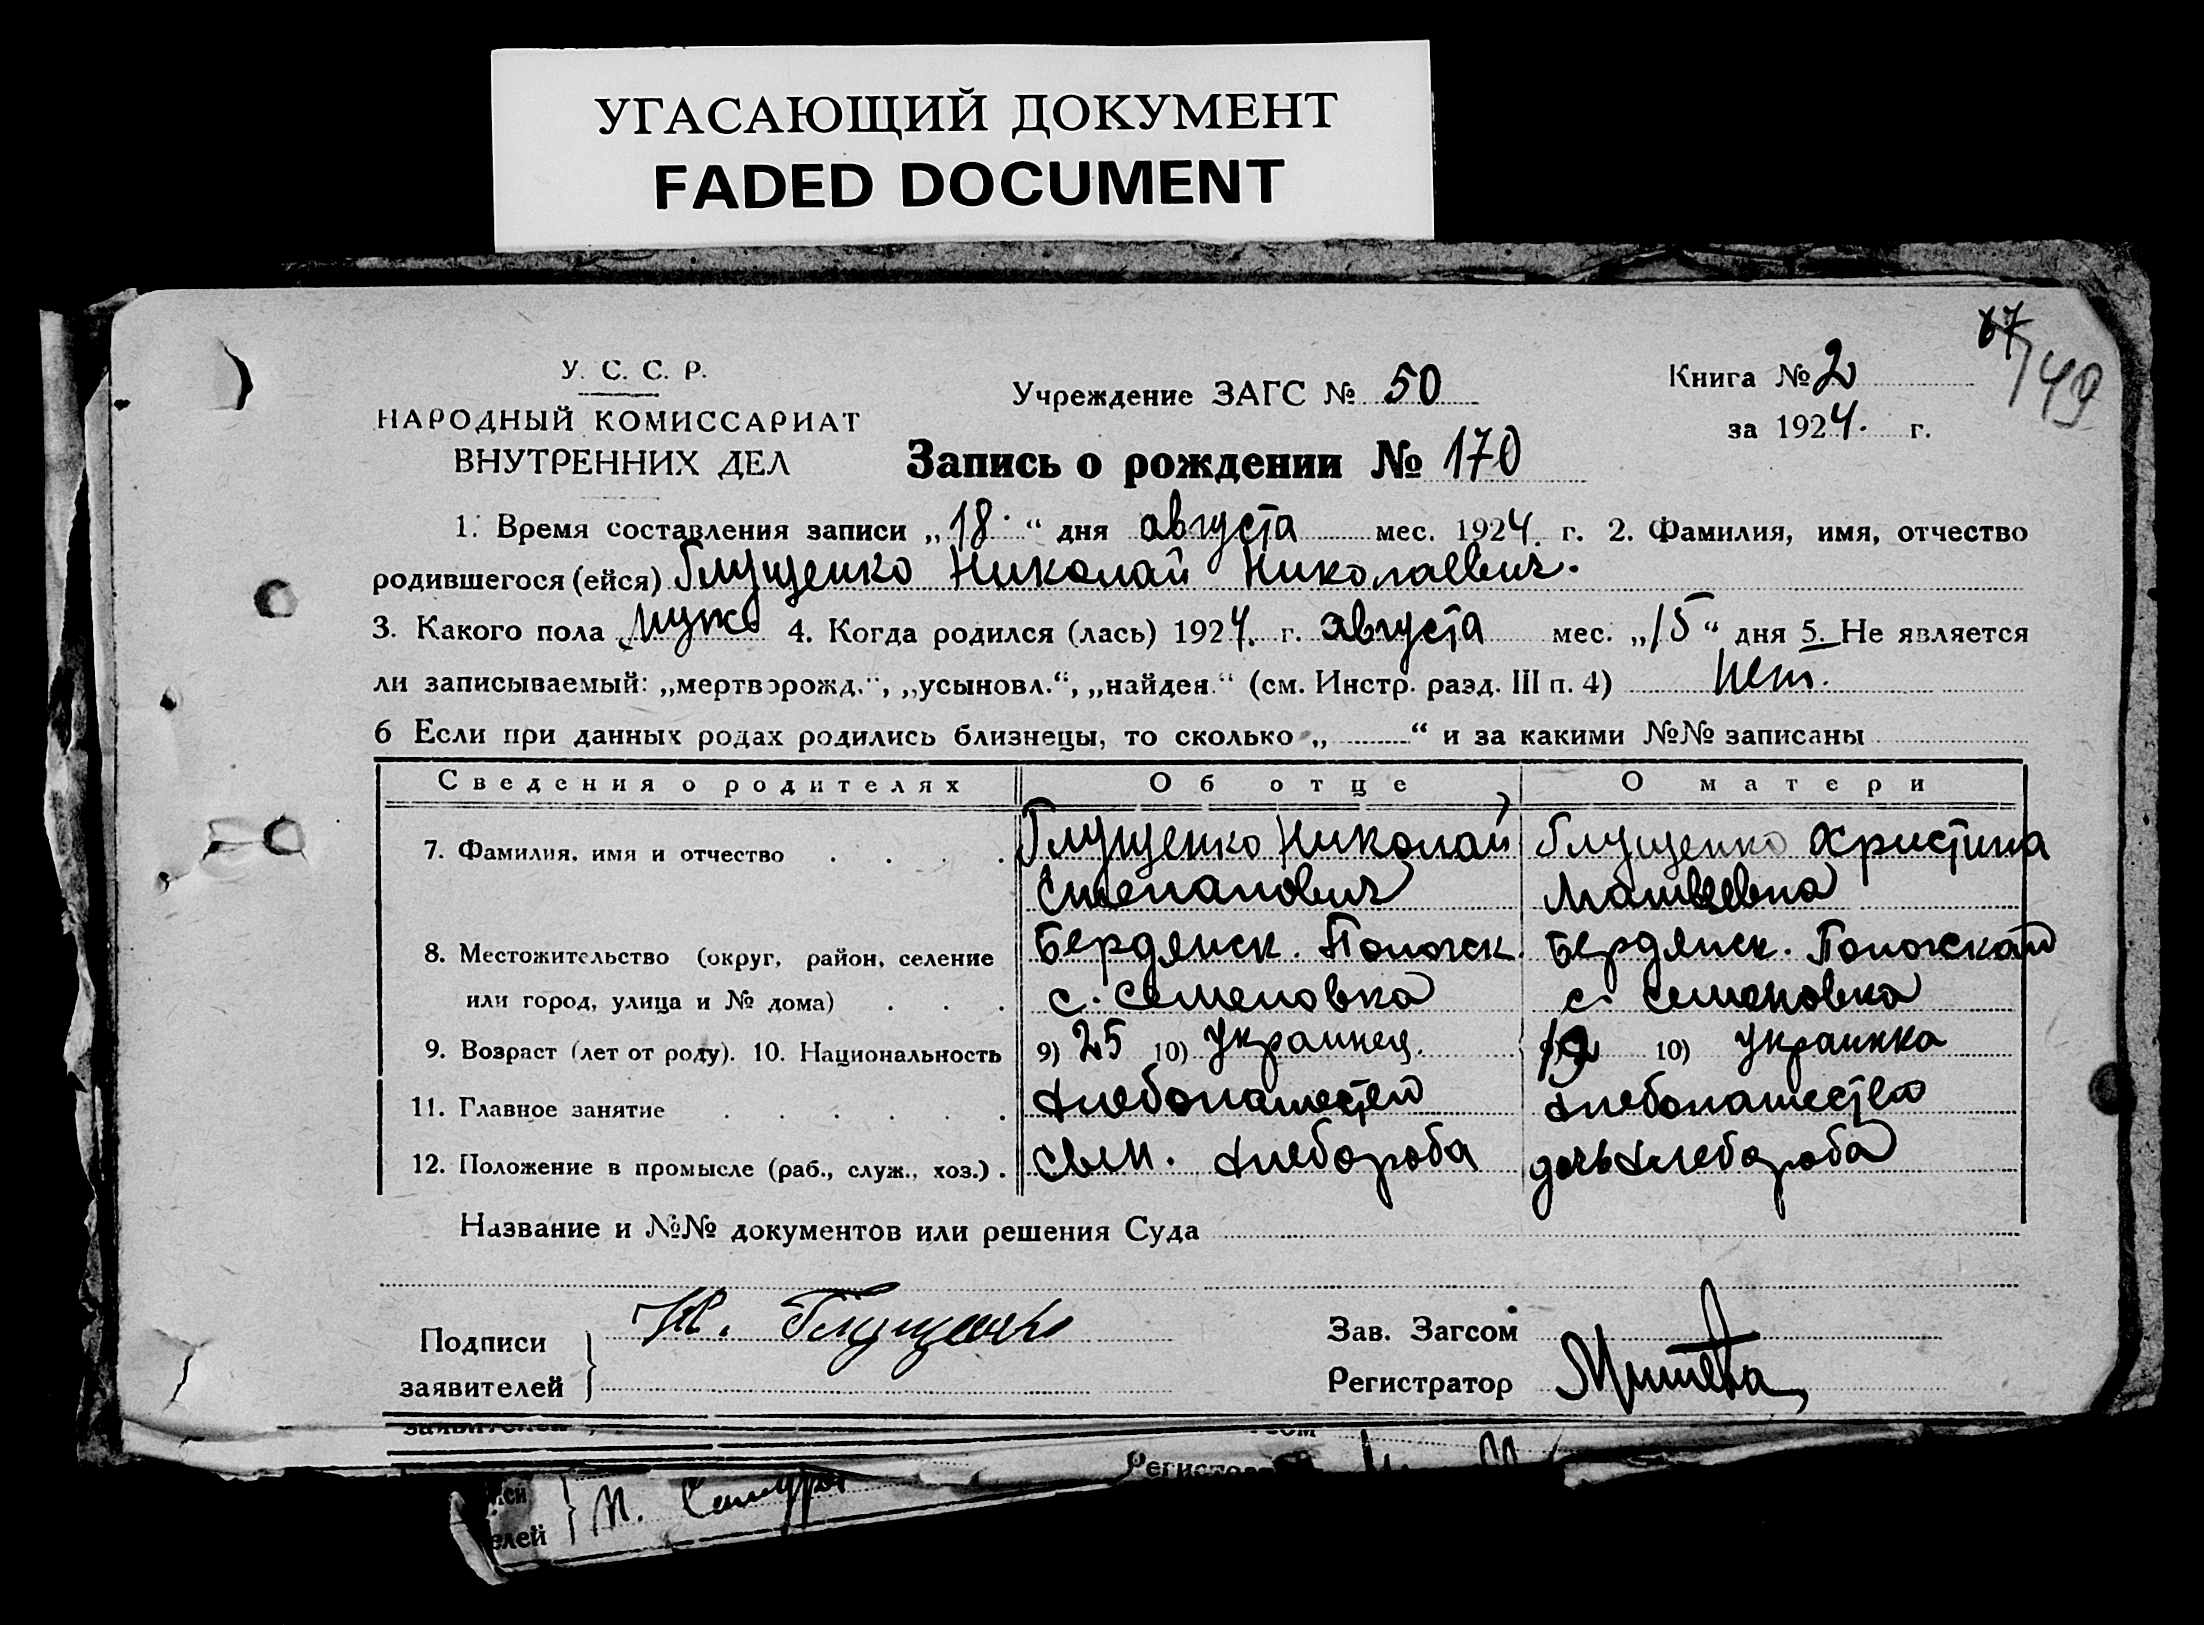 УГАСАЮЩИЙ ДОКУМЕНТ
FADED DOCUMENT
67/49
У. С. С. Р.
НАРОДНЫЙ КОМИССАРИАТ
ВНУТРЕННИХ ДЕЛ
Учреждение ЗАГС № 50
Книга № 2
за 1924. г.
Запись о рождении № 170
1. Время составления записи „18" дня августа мес. 1924. г. 2. Фамилия, имя, отчество
родившегося (ейся) Глущенко Николай Николаевич.
3. Какого пола муж 4. Когда родился (лась) 1924. г. августа мес. „15" дня 5. Не является
ли записываемый: „мертворожд.", „усыновл.", „найден." (см. Инстр. разд. III п. 4) нет.
6 Если при данных родах родились близнецы, то сколько „ " и за какими №№ записаны
Сведения о родителях Об отце О матери
7. Фамилия, имя и отчество Глущенко Николай Глущенко Христина
Степанович Матвеевна
8. Местожительство (округ, район, селение Бердянск. Пологск. Бердянск. Пологский
или город, улица и № дома) с. Семеновка с. Семеновка
9. Возраст (лет от роду). 10. Национальность 9) 25 10) Украинец. 10) Украинка
11. Главное занятие хлебопашество хлебопашество
12. Положение в промысле (раб., служ., хоз.) сын. хлебороба дочь хлебороба
Название и №№ документов или решения Суда
Подписи
заявителей
Н. Глущенко
Зав. Загсом
Регистратор
заявителей